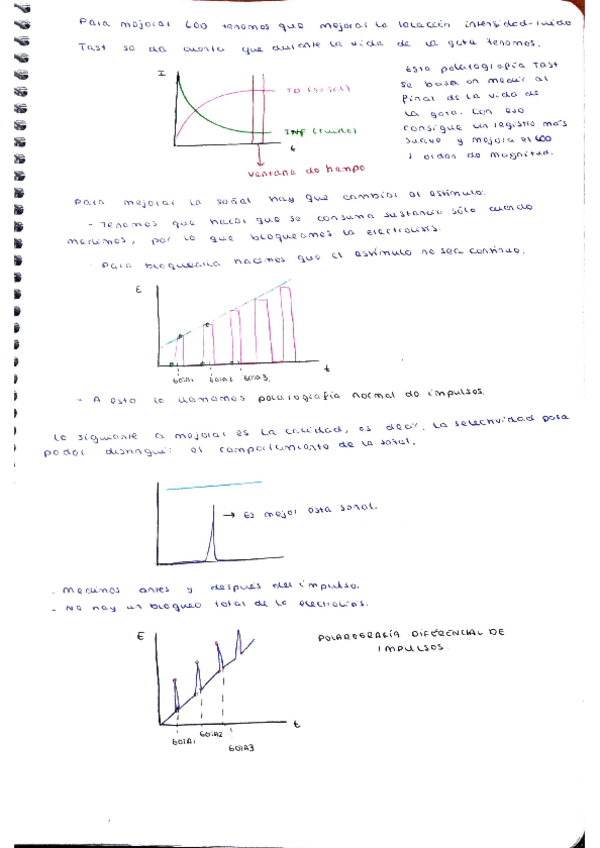 Para mejorar LOD tenemos que mejorar la relación intensidad-ruido
Tast se da cuenta que durante la vida de la gota tenemos.
I
ID (señal)
INF (ruido)
t
ventana de tiempo
Esta polarografía Tast
se basa en medir al
final de la vida de
la gota. Con eso
consigue un registro más
suave y mejora el LOD
1 orden de magnitud.
Para mejorar la señal hay que cambiar el estímulo.
- Tenemos que hacer que se consuma sustancia sólo cuando
medimos, por lo que bloqueamos la electrolisis.
- Para bloquearla hacemos que el estímulo no sea continuo.
E
t
GOTA1 GOTA2 GOTA3.
- A esto le llamamos polarografía normal de impulsos.
Lo siguiente a mejorar es la calidad, es decir, la selectividad para
poder distinguir el comportamiento de la señal.
→ Es mejor esta señal.
- Medimos antes y después del impulso.
- No hay un bloqueo total de la electrolisis.
E
t
GOTA1
GOTA2
GOTA3
POLAROGRAFÍA DIFERENCIAL DE
IMPULSOS.